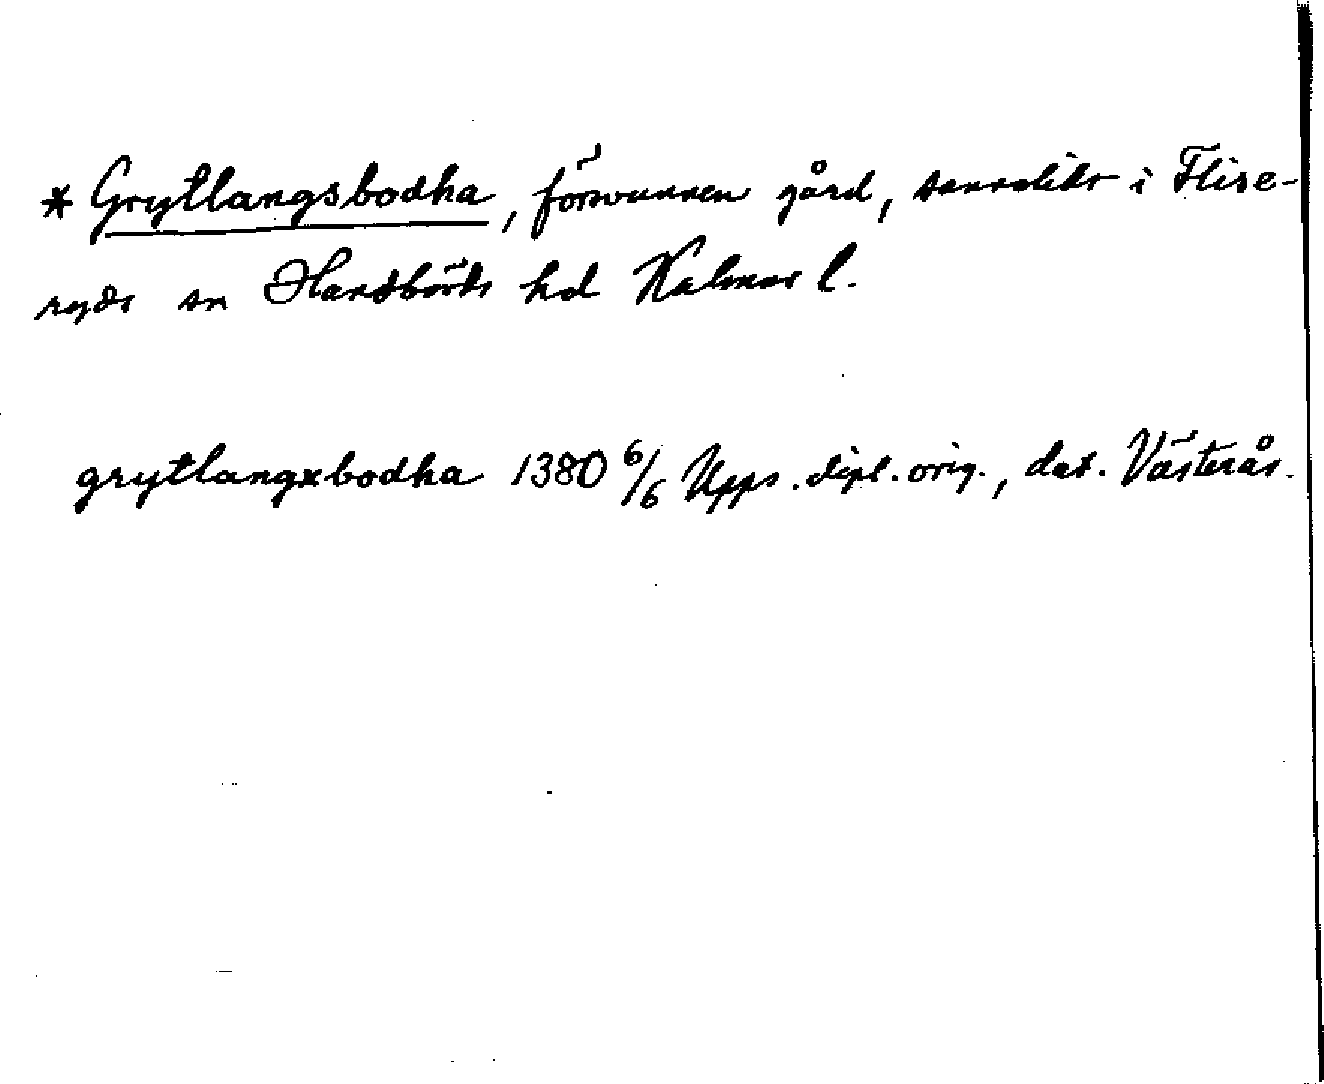 * Grytlangsbodha, försvunnen gård, sannolikt i Flise-
ryds sn Handbörds hd Kalmar l.
grytlangxbodha 1380 6/6 Upps. dipl. orig., dat. Västerås.